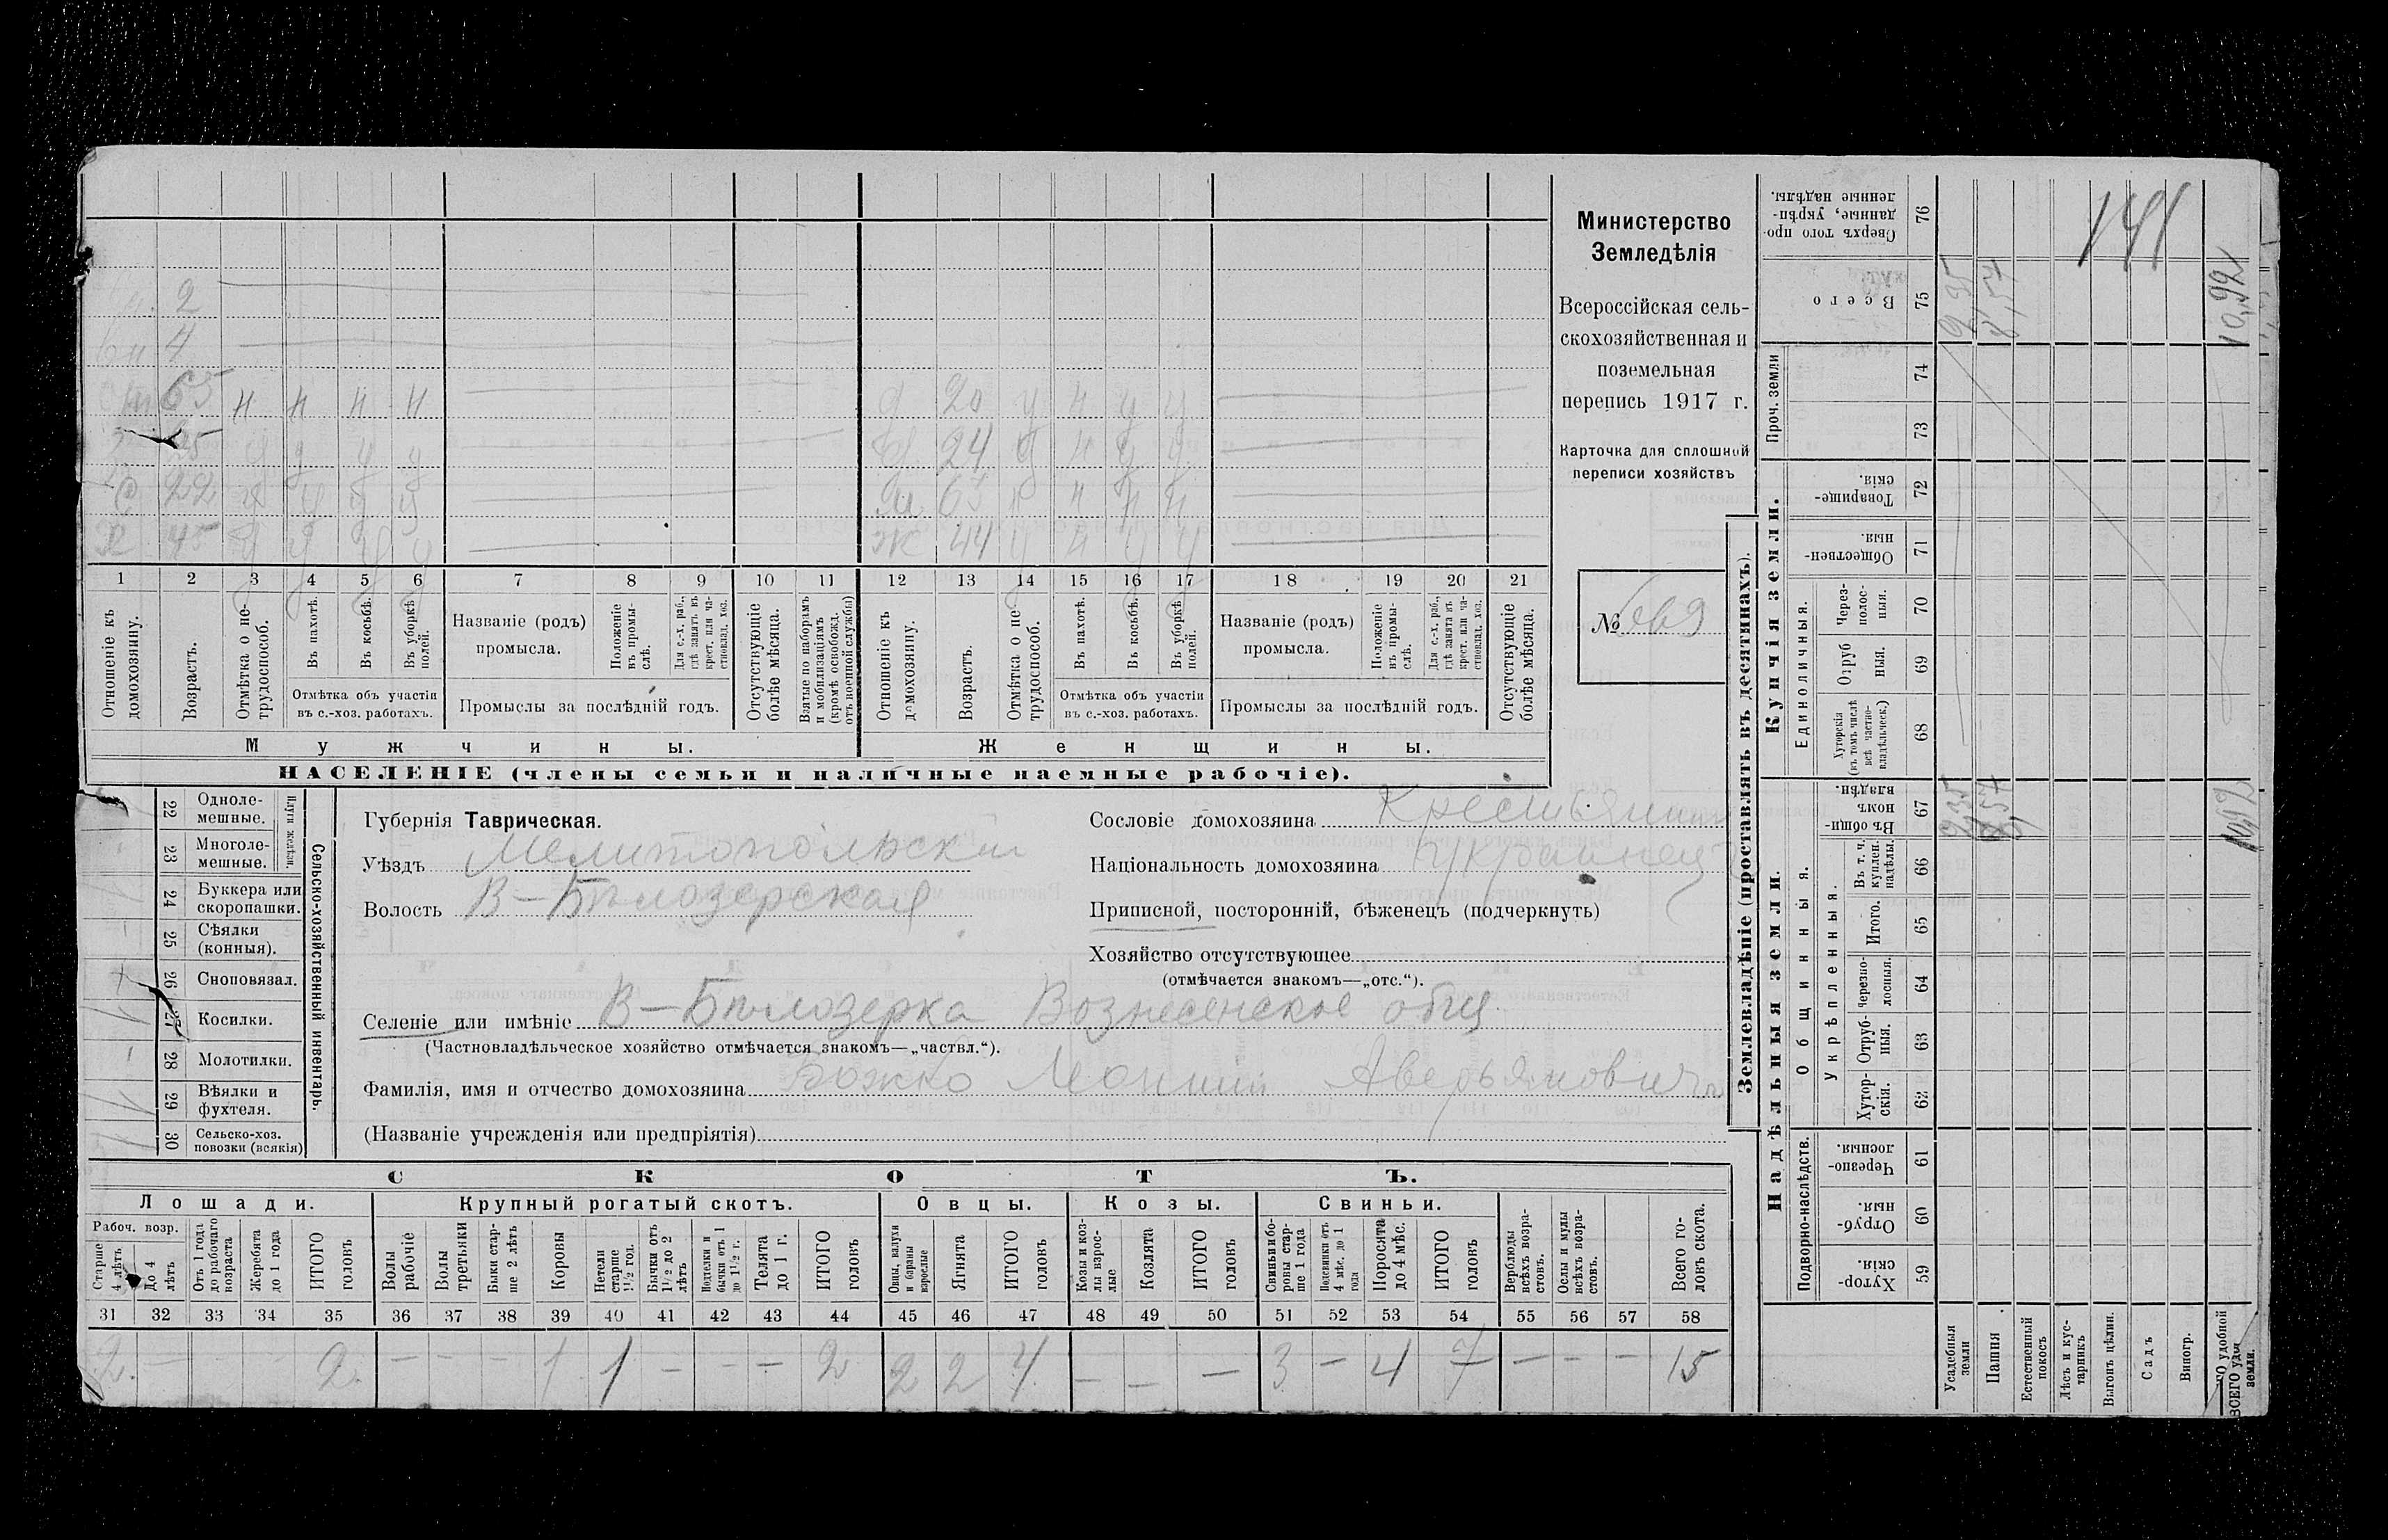 2
4
65 н н н н
Д 20 у н у у
25 у у у у
Д 24 у н у у
С 22 у у у у
М 63 н н н н
Х 45 у у у у
Ж 44 у н у у
1 2 3 4 5 6 7 8 9 10 11 12 13 14 15 16 17 18 19 20 21
Отношеніе къ домохозяину.
Возрастъ.
Отмѣтка о не-
трудоспособ.
Въ пахотѣ.
Въ косьбѣ.
Въ уборкѣ полей.
Отмѣтка объ участіи
въ с.-хоз. работахъ.
Названіе (родъ)
промысла.
Положеніе въ промы-
слѣ.
Для с.-х. раб., гдѣ занятъ въ крест. или ча-
стновлад. хоз.
Промыслы за послѣдній годъ.
Отсутствующіе болѣе мѣсяца.
Взятые по наборамъ и мобилизаціямъ (кромѣ освобожд. отъ военной службы)
Отношеніе къ домохозяину.
Возрастъ.
Отмѣтка о не-
трудоспособ.
Въ пахотѣ.
Въ косьбѣ.
Въ уборкѣ полей.
Отмѣтка объ участіи
въ с.-хоз. работахъ.
Названіе (родъ)
промысла.
Положеніе въ промы-
слѣ.
Для с.-х. раб., гдѣ занята въ крест. или ча-
стновлад. хоз.
Промыслы за послѣдній годъ.
Отсутствующіе болѣе мѣсяца.
Мужчины.
Женщины.
НАСЕЛЕНІЕ (члены семьи и наличные наемные рабочіе).
Министерство
Земледѣлія
Всероссійская сель-
скохозяйственная и
поземельная
перепись 1917 г.
Карточка для сплошной
переписи хозяйствъ
№ 669
Сельско-хозяйственный инвентарь.
Плуги желѣзн.
22 Одноле-
мешные.
23 Многоле-
мешные.
24 Буккера или
скоропашки.
25 Сѣялки
(конныя).
26 Сноповязал.
27 Косилки.
28 Молотилки.
29 Вѣялки и
фухтеля.
30 Сельско-хоз.
повозки (всякія)
Губернія Таврическая.
Уѣздъ Мелитопольскій
Волость В-Бѣлозерская
Сословіе домохозяина Крестьянин
Національность домохозяина Украинец
Приписной, посторонній, бѣженецъ (подчеркнуть)
Хозяйство отсутствующее
(отмѣчается знакомъ—„отс.“).
Селеніе или имѣніе В-Бѣлозерка Вознесенское общ
(Частновладѣльческое хозяйство отмѣчается знакомъ—„частвл.“).
Фамилія, имя и отчество домохозяина Божко Леонтій Аверьяновичъ
(Названіе учрежденія или предпріятія)
СКОТЪ.
Лошади. Крупный рогатый скотъ. Овцы. Козы. Свиньи.
Рабоч. возр.
Старше 4 лѣтъ
До 4 лѣтъ
Отъ 1 года до рабочаго возраста
Жеребята до 1 года
ИТОГО головъ
Волы рабочіе
Волы третьяки
Быки стар-
ше 2 лѣтъ
Коровы
Нетели старше 1½ год.
Бычки отъ 1½ до 2 лѣтъ
Подтелки и бычки отъ 1 до 1½ г.
Телята до 1 г.
ИТОГО головъ
Овцы, валухи и бараны взрослые
Ягнята
ИТОГО головъ
Козы и коз-
лы взрос-
лые
Козлята
ИТОГО головъ
Свиньи и бо-
ровы стар-
ше 1 года
Подсвинки отъ 4 мѣс. до 1 года
Поросята до 4 мѣс.
ИТОГО головъ
Верблюды всѣхъ возра-
стовъ.
Ослы и мулы всѣхъ возра-
стовъ.
Всего го-
ловъ скота.
31 32 33 34 35 36 37 38 39 40 41 42 43 44 45 46 47 48 49 50 51 52 53 54 55 56 57 58
2 — — — 2 — — — 1 1 — — — 2 2 2 4 — — — 3 — 4 7 — — — 15
Землевладѣніе (проставлять въ десятинахъ).
Купчія земли.
Надѣльныя земли.
Сверхъ того про-
данные, укрѣп-
ленные надѣлы. 76
141
Всего 75
2,35 8,57 10,92
Проч. земли
74
73
Товарище-
скія. 72
Обществен-
ныя. 71
Единоличныя.
Через-
полос-
ныя. 70
Отруб
ныя. 69
Хуторскія (въ томъ числѣ всѣ частно-
владѣльческ.) 68
Общинныя.
Въ общин-
номъ владѣн. 67
2,35 8,57 10,92
Укрѣпленныя.
Въ т. ч. куплен. надѣлы. 66
Итого. 65
Черезпо-
лосныя. 64
Отруб-
ныя. 63
Хутор-
скія. 62
Подворно-наслѣдств.
Черезпо-
лосныя. 61
Отруб-
ныя. 60
Хутор-
скія. 59
Усадебныя земли
Пашня
Естественный покосъ
Лѣсъ и кус-
тарникъ
Выгонъ цѣлин.
Садъ
Виногр.
ВСЕГО удобной земли.